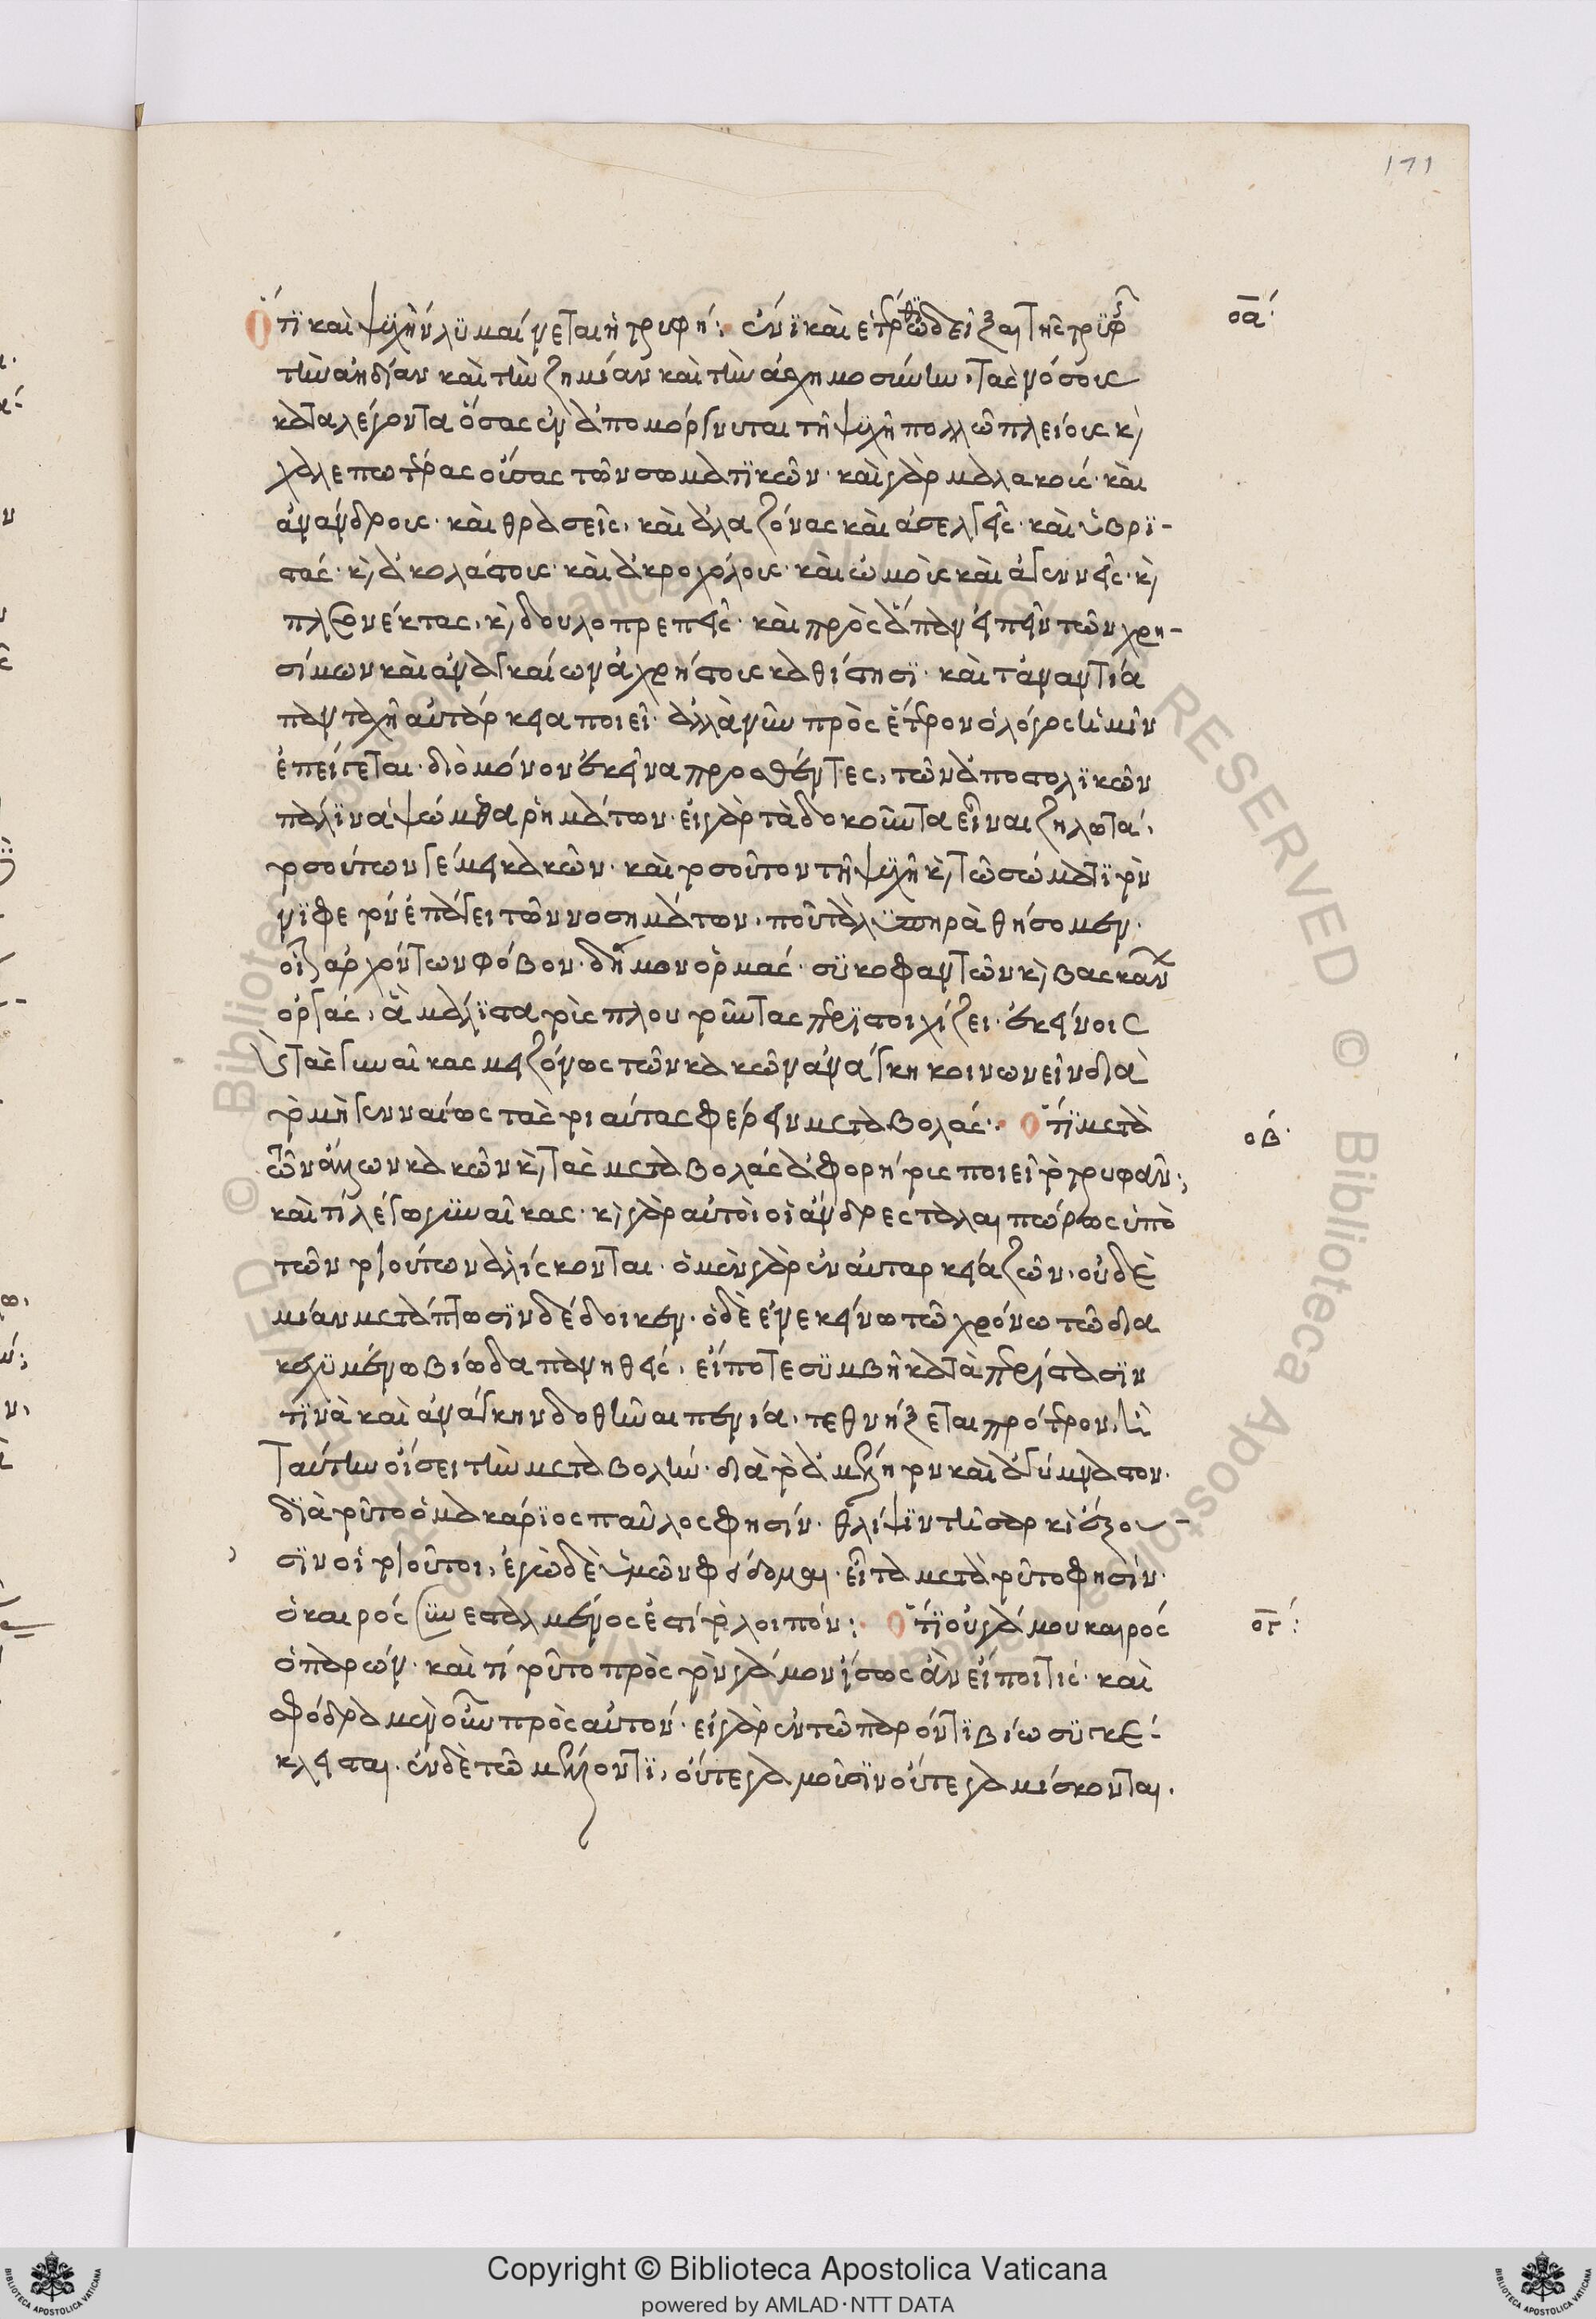 171
Ὅτι καὶ ψυχὴν λυμαίνεται ἡ τρυφή: ἔνι καὶ ἑτέρωθι δεῖξαι τῆς τρυφῆς οα
τὴν ἀηδίαν καὶ τὴν ζημίαν καὶ τὴν ἀσχημοσύνην, τὰς νόσους
καταλέγοντα ὅσας ἐναπομόργνυται τῇ ψυχῇ πολλῷ πλείους κὶ
χαλεπωτέρας οὔσας τῶν σωματικῶν· καὶ γὰρ μαλακοὺς· καὶ
ἀνάνδρους· καὶ θρασεῖς, καὶ ἀλαζόνας καὶ ἀσελγεῖς· καὶ ὑβρι-
στάς· κὶ ἀκολάστους· καὶ ἀκροχόλους· καὶ ὠμοὺς καὶ ἀγεννεῖς· κὶ
πλεονέκτας, κὶ δουλοπρεπεῖς· καὶ πρὸς ἅπαν εἰπεῖν τῶν χρη-
σίμων καὶ ἀναγκαίων ἀχρήστους καθίστησι· καὶ τἀναντία
πανταχῆ αὐτάρκεια ποιεῖ· ἀλλὰ νῦν πρὸς ἕτερον ὁ λόγος ἡμῖν
ἐπείγεται. διὸ μόνον ἐκεῖνα προσθέντες, τῶν ἀποστολικῶν
πάλιν ἁψώμεθα ῥημάτων· εἰ γὰρ τὰ δοκοῦντα εἶναι ζηλωτά,
τοσούτων γέμει κακῶν· καὶ τοσοῦτον τῇ ψυχῇ κὶ τῷ σώματι τὸν
νιφετὸν ἐπάγει τῶν νοσημάτων, ποῦ τὰ λυπηρὰ θήσομεν.
οἷον ἀρχόντων φόβον· δήμων ὁρμάς· συκοφαντῶν κὶ βασκάνων
ὀργάς, ἃ μάλιστα τοὺς πλουτοῦντας περιστοιχίζει. ἐκείνοις
τὰς γυναῖκας μειζόνως τῶν κακῶν ἀνάγκη κοινωνεῖν διὰ
τὸ μὴ γενναίως τὰς τοιαύτας φέρειν μεταβολάς: Ὅτι μετὰ οβ
τῶν ἄλλων κακῶν κὶ τὰς μεταβολὰς ἀφορήτους ποιεῖ τὸ τρυφᾶν:
καὶ τί λέγω γυναῖκας· κὶ γὰρ αὐτοὶ οἱ ἄνδρες ταλαιπώρως ὑπὸ
τῶν τοιούτων ἁλίσκονται. ὁ μὲν γὰρ ἐν αὐταρκείᾳ ζῶν, οὐδὲ
μίαν μετάπτωσιν δέδοικεν. ὁ δὲ ἐν ἐκείνῳ τῷ χρόνῳ τῷ δια
κεχυμένῳ βίῳ δαπανηθείς, εἴποτε συμβῇ κατὰ περίστασιν
τινὰ καὶ ἀνάγκην δοθῆναι πενία, τεθνήξεται πρότερον, ἢ
ταύτην οἴσει τὴν μεταβολήν· διὰ τὸ ἀμελέτητον καὶ ἀγύμναστον.
διὰ τοῦτο ὁ μακάριος παῦλος φησίν· θλίψιν τῇ σαρκὶ ἕξου-
σιν οἱ τοιοῦτοι, ἐγὼ δὲ ὑμῶν φείδομαι. εἶτα μετὰ τοῦτο φησίν·
ὁ καιρός συνεσταλμένος ἐστί τὸ λοιπόν: Ὅτι οὐ γάμου καιρός ογ
ὁ παρών· καὶ τί τοῦτο πρὸς τὸν γάμον ἴσως ἂν εἴποι τίς· καὶ
σφόδρα μὲν οὖν πρὸς αὐτόν. εἰ γὰρ ἐν τῷ παρόντι βίῳ συγκέ-
κλεισται. ἐν δὲ τῷ μέλλοντι, οὔτε γαμοῦσιν οὔτε γαμίσκονται.
Copyright © Biblioteca Apostolica Vaticana
powered by AMLAD·NTT DATA